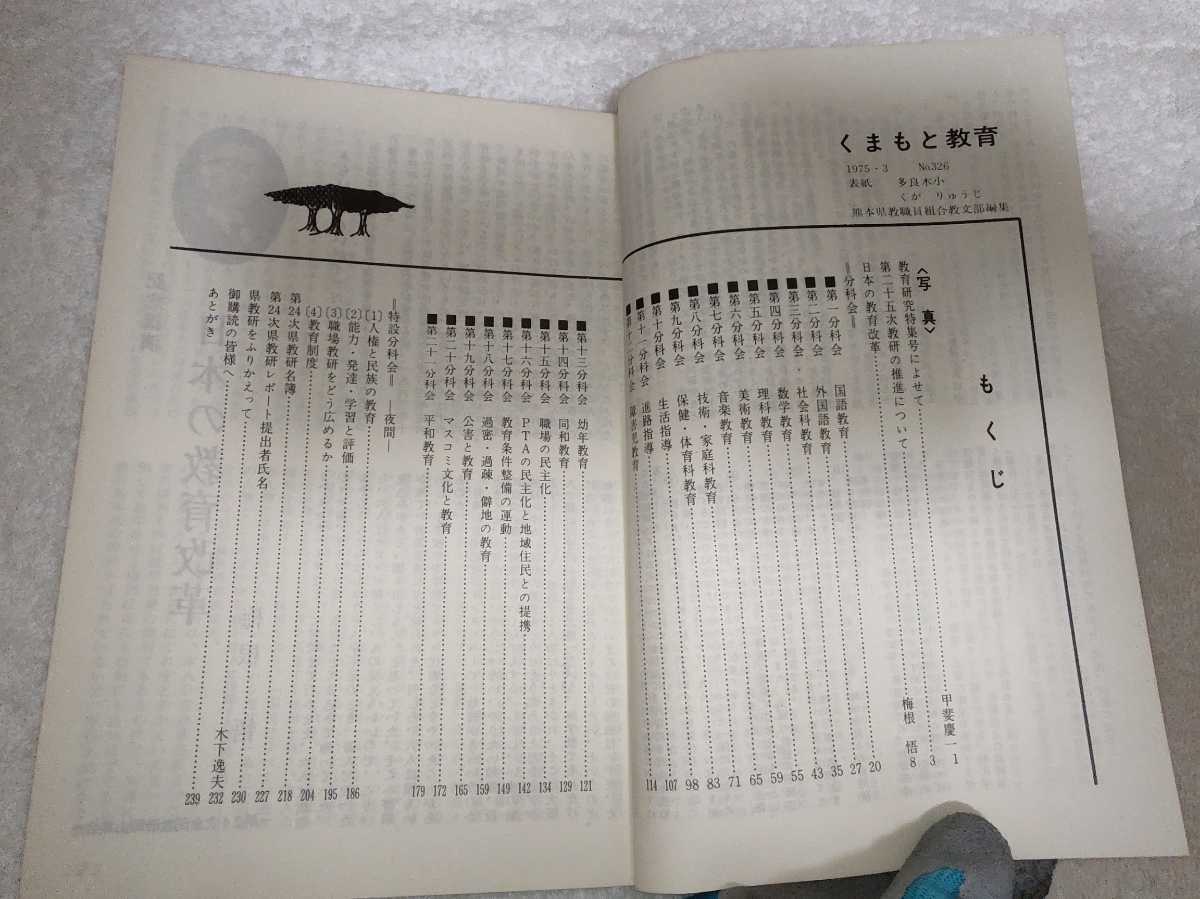 くまもと教育
1975・3　No.326
表紙　多良木小
くが　りゅうじ
熊本県教職員組合教文部編集
もくじ
〈写　真〉
教育研究特集号によせて……甲斐慶一 1
第二十五次教研の推進について……3
日本の教育改革……梅根　悟 8
＝分科会＝
■第一分科会　国語教育……20
■第二分科会　外国語教育……27
■第三分科会　社会科教育……35
■第四分科会　数学教育……43
■第五分科会　理科教育……55
■第六分科会　美術教育……59
■第七分科会　音楽教育……65
■第八分科会　技術・家庭科教育……71
■第九分科会　保健・体育科教育……83
■第十分科会　生活指導……98
■第十一分科会　進路指導……107
■第十二分科会　障害児教育……114
■第十三分科会　幼年教育……121
■第十四分科会　同和教育……129
■第十五分科会　職場の民主化……134
■第十六分科会　PTAの民主化と地域住民との提携……142
■第十七分科会　教育条件整備の運動……149
■第十八分科会　過密・過疎・僻地の教育……159
■第十九分科会　公害と教育……165
■第二十分科会　マスコミ文化と教育……172
■第二十一分科会　平和教育……179
＝特設分科会＝　―夜間―
〔1〕人権と民族の教育……186
〔2〕能力・発達・学習と評価……195
〔3〕職場教研をどう広めるか……204
〔4〕教育制度……218
第24次県教研名簿……227
第24次県教研レポート提出者氏名
県教研をふりかえって……230
御購読の皆様へ……木下逸夫 232
あとがき……239